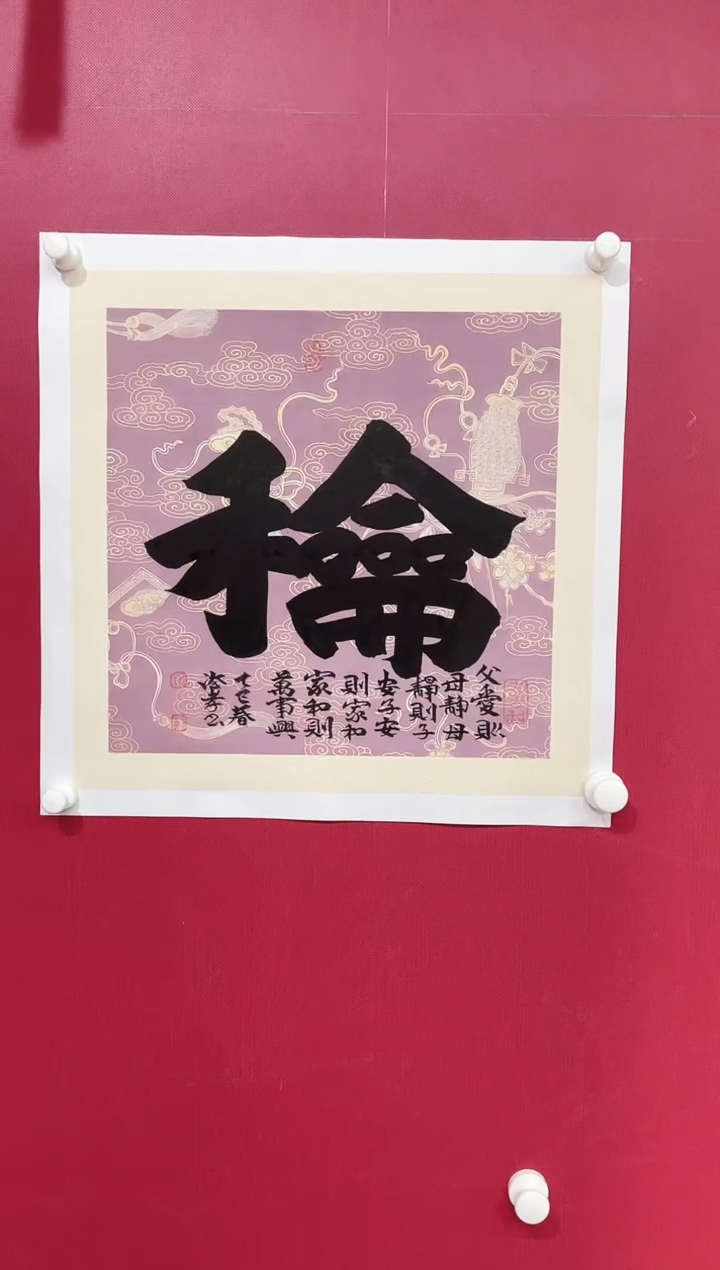 龢
父愛則
母靜母
靜則子
安子安
則家和
家和則
萬事興
乙巳春